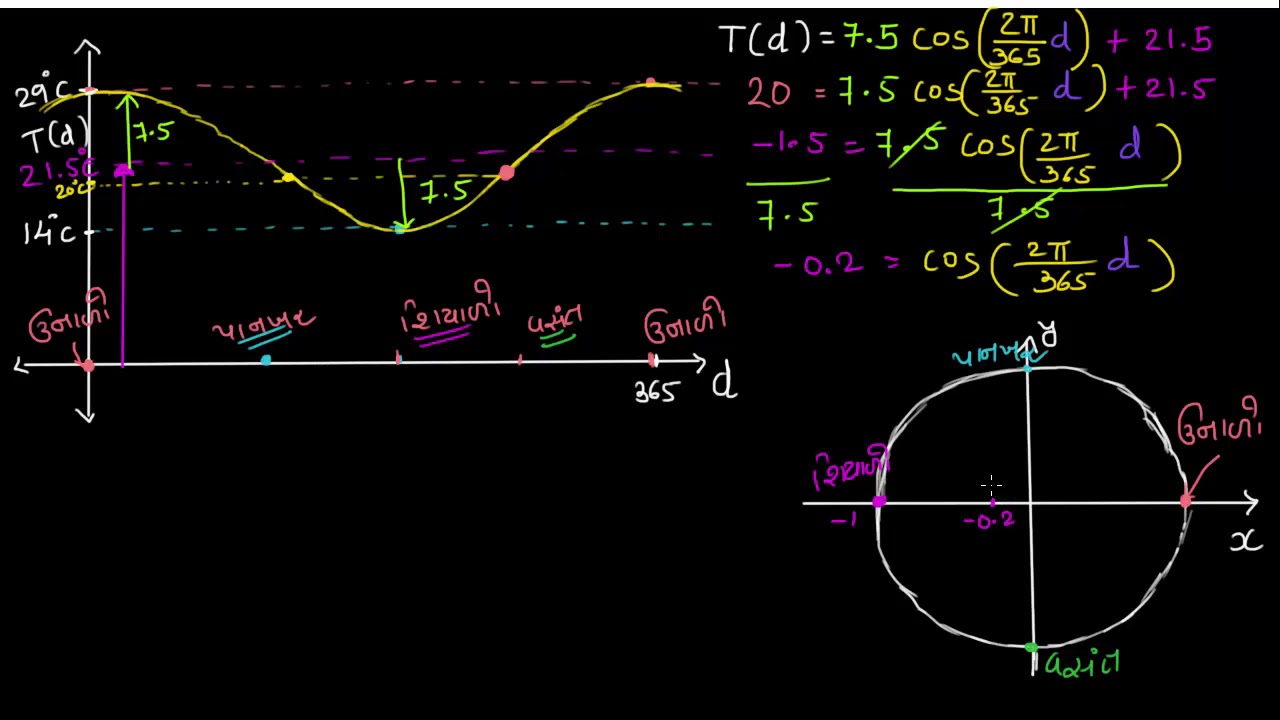 29°C
T(d)
21.5°C
20°C
14°C
7.5
7.5
ઉનાળો
પાનખર
શિયાળો
વસંત
ઉનાળો
365
d
T(d) = 7.5 cos(2π/365 d) + 21.5
20 = 7.5 cos(2π/365 d) + 21.5
-1.5 = 7.5 cos(2π/365 d)
7.5 7.5
-0.2 = cos(2π/365 d)
y
પાનખર
ઉનાળો
શિયાળો
-1
-0.2
x
વસંત